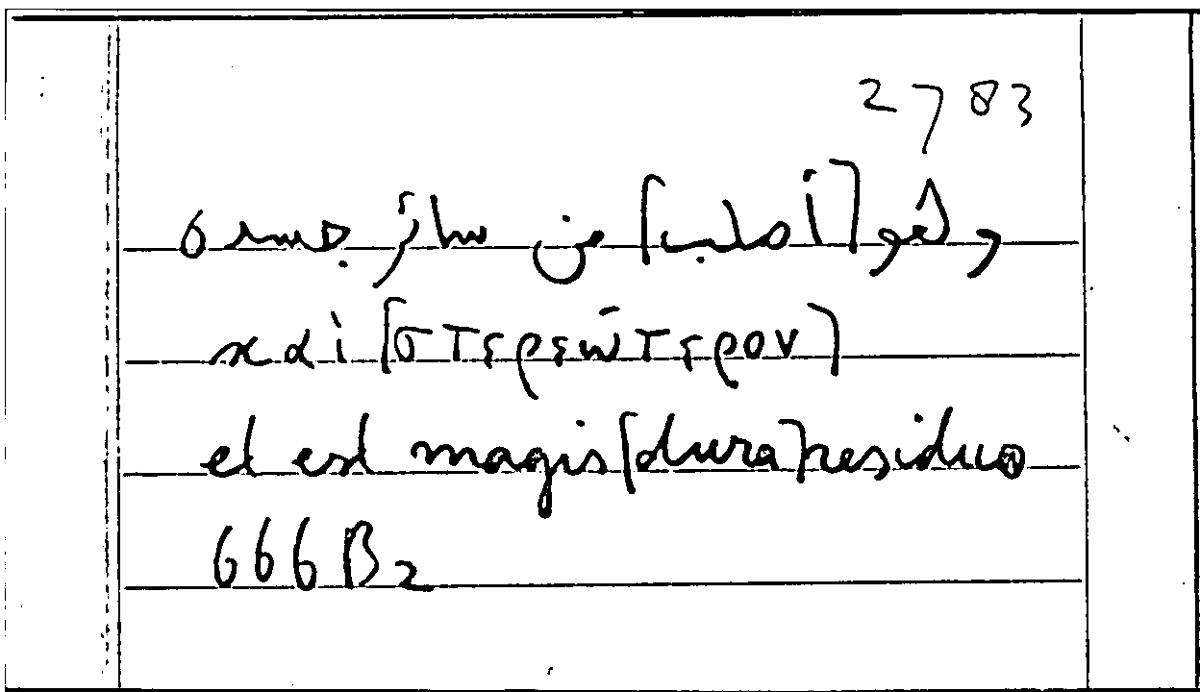 2783
وهو [أصلب] من سائر جسده
καὶ [στερεώτερον]
et est magis [dura] residuo
666B2